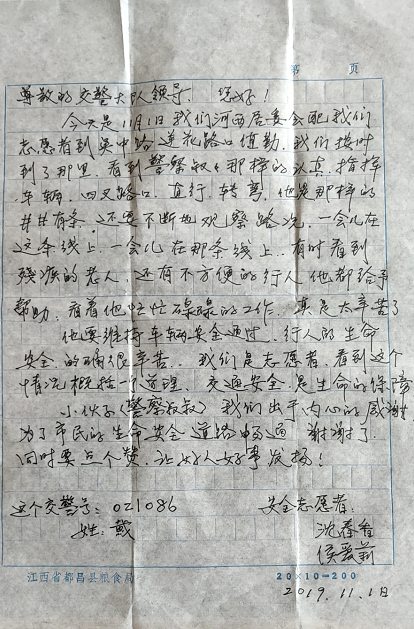 第 页
尊敬的交警大队领导. 您好!
今天是11月1日我们河西居委会配我们
志愿者到吴中路莲花路口值勤. 我们按时
到了那里. 看到警察叔叔那样的认真. 指挥
车辆. 四叉路口. 直行. 转弯. 他是那样的
井井有条. 还要不断地观察路况. 一会儿在
这条线上. 一会儿在那条线上.. 有时看到
残疾的老人. 还有不方便的行人他都给予
帮助. 看着他忙忙碌碌的工作. 真是太辛苦了
他要维持车辆安全通过. 行人的生命
安全. 的确很辛苦.. 我们是志愿者. 看到这个
情况概括一个道理. 交通安全. 是生命的保障
小伙子(警察叔叔) 我们出于内心的感谢
为了市民的生命安全 道路畅通 谢谢了.
同时要点个赞. 让好人好事发扬!
这个交警号: 021086 安全志愿者:
姓: 戴 沈春香
侯爱莉
江西省都昌县粮食局 20×10=200
2019.11.1日